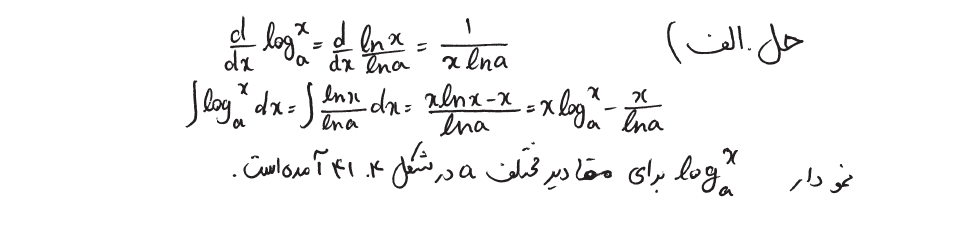 حل. الف)
d/dx log_a^x = d/dx lnx/lna = 1/(x lna)
∫log_a^x dx = ∫ lnx/lna dx = (xlnx-x)/lna = x log_a^x - x/lna
نمودار log_a^x برای مقادیر مختلف a در شکل ۴.۴۱ آمده‌است.